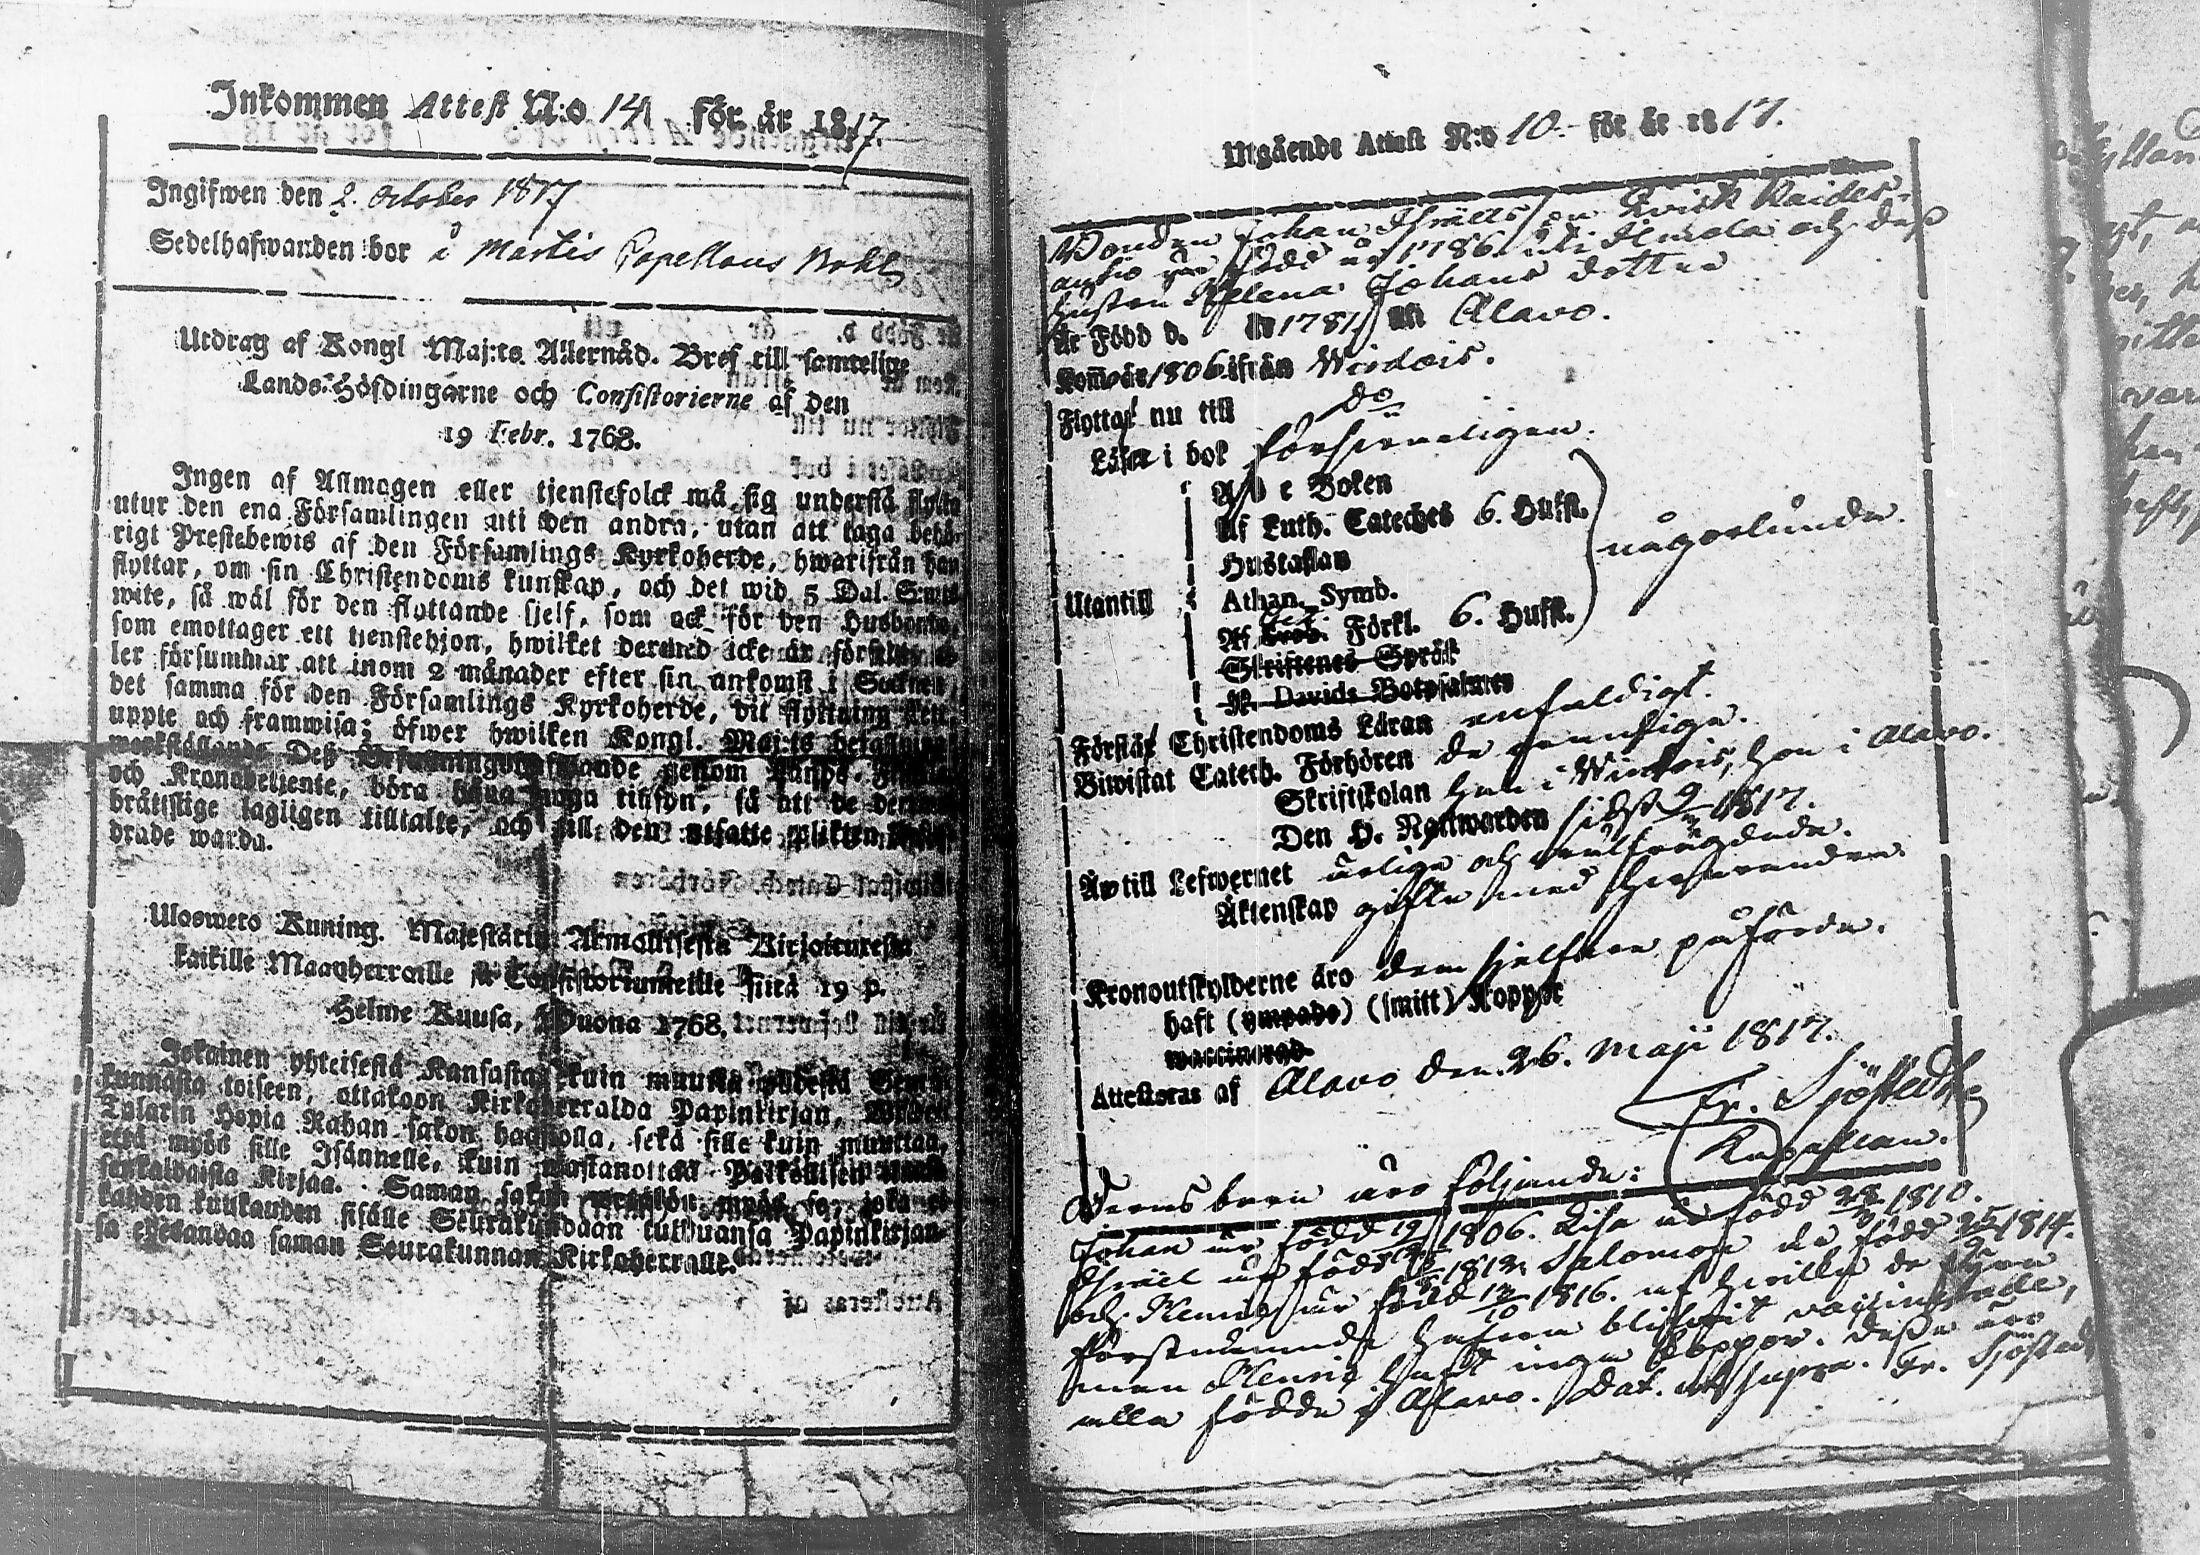 Inkommen Attest N:o 14 för år 1817.
Ingifwen den 2. October 1817
Sedelhafwanden bor å Martis
Utdrag af Kongl Maj:ts Allernåd. Bref till samtelige
Lands-Höfdingarne och Consistorierne af den
19 Febr. 1768.
Ingen af Allmogen eller tjenstefolck må sig understå flytta
utur den ena Församlingen uti den andra, utan att taga behö-
rigt Prestebewis af den Församlings Kyrkoherde, hwarifrån han
flyttar, om sin Christendoms kunskap, och det wid 5 Dal. S:mts
wite, så wäl för den flyttande sjelf, som ock för den Husbonde,
som emottager ett tjenstehjon, hwilket dermed icke är försedt, el-
ler försummar att inom 2 månader efter sin ankomst i Socknen
det samma för den Församlings Kyrkoherde, dit flyttning sker,
uppte och framwisa; öfwer hwilken Kongl. Maj:ts befallning
werkställande Deß Befallningshafwande genom Lands-
och Kronobetjente, böra hafwa noga tillsyn, så att de
bråttslige lagligen tilltalte, och till den utsatte plikten
drade warda.
Ulosweto Kuning. Majestätin Armollisesta Kirjoituresta
kaikille Maanherroille ja Consistoriumeille siitä 19 p.
Helme Kuusa, Wuona 1768.
Jokainen yhteisestä Kansasta, kuin muutta yhdestä Seura-
kunnasta toiseen, ottakoon Kirkoherralda Papinkirjan, Wijden
Talarin Hopia Rahan sakon haastolla, sekä sille kuin muuttaa,
että myös sille Isännelle, kuin wastanottaa Palkollisen ilman
senkaldaista Kirjaa. Saman sakon myös se, joka ei
kahden kuukauden sisälle Seurakundaan tulduansa Papinkirjan-
sa edesandaa saman Seurakunnan Kirkoherralle.
Utgående Attest N:o 10. för år 1817.
Bonden Johan Israelsson Qvick
är född år 1786 uti Ilmola och deß
hustru Helena Johans dotter
Är Född d. år 1781 uti Alavo.
Kom år 1806 ifrån Wirdois.
Flyttar nu till do
Läser i bok försvarligen.
A b c Boken
Af Luth. Cateches 6. Hufst.
Hustaflan
Athan. Symb.
Utantill någorlunda.
Af Förkl. 6. Hufst.
Skriftenes Språk
K. Davids Botpsalmer
Förstår Christendoms Läran enfaldigt.
Biwistat Catech. Förhören de
Skriftskolan han i Wirdois, hon i Alavo.
Den H. Nattwarden sidst 1817.
Är till Lefwernet ärliga och wälfrägdade.
Äktenskap gifte med hwarandra.
Kronoutskylderne äro dem sjelfwe påförda.
haft (ympade) (smitt) Koppor
waccinerad.
Attesteras af Alavo den 26. Maji 1817.
Fr. Sjöstedt
Kapellan.
Deras barn äro följande:
Johan är född 1806. Lisa är född 1810.
Israel är född 1812. Salomon är född 1814.
och Henric är född 12/10 1816. af hwilka de fyra
förstnämnde hafwa blifwit vaccinerade,
men Henric haft inga koppor. Deße äro
alla födde i Alavo. Dat. ut supra. Fr. Sjöstedt